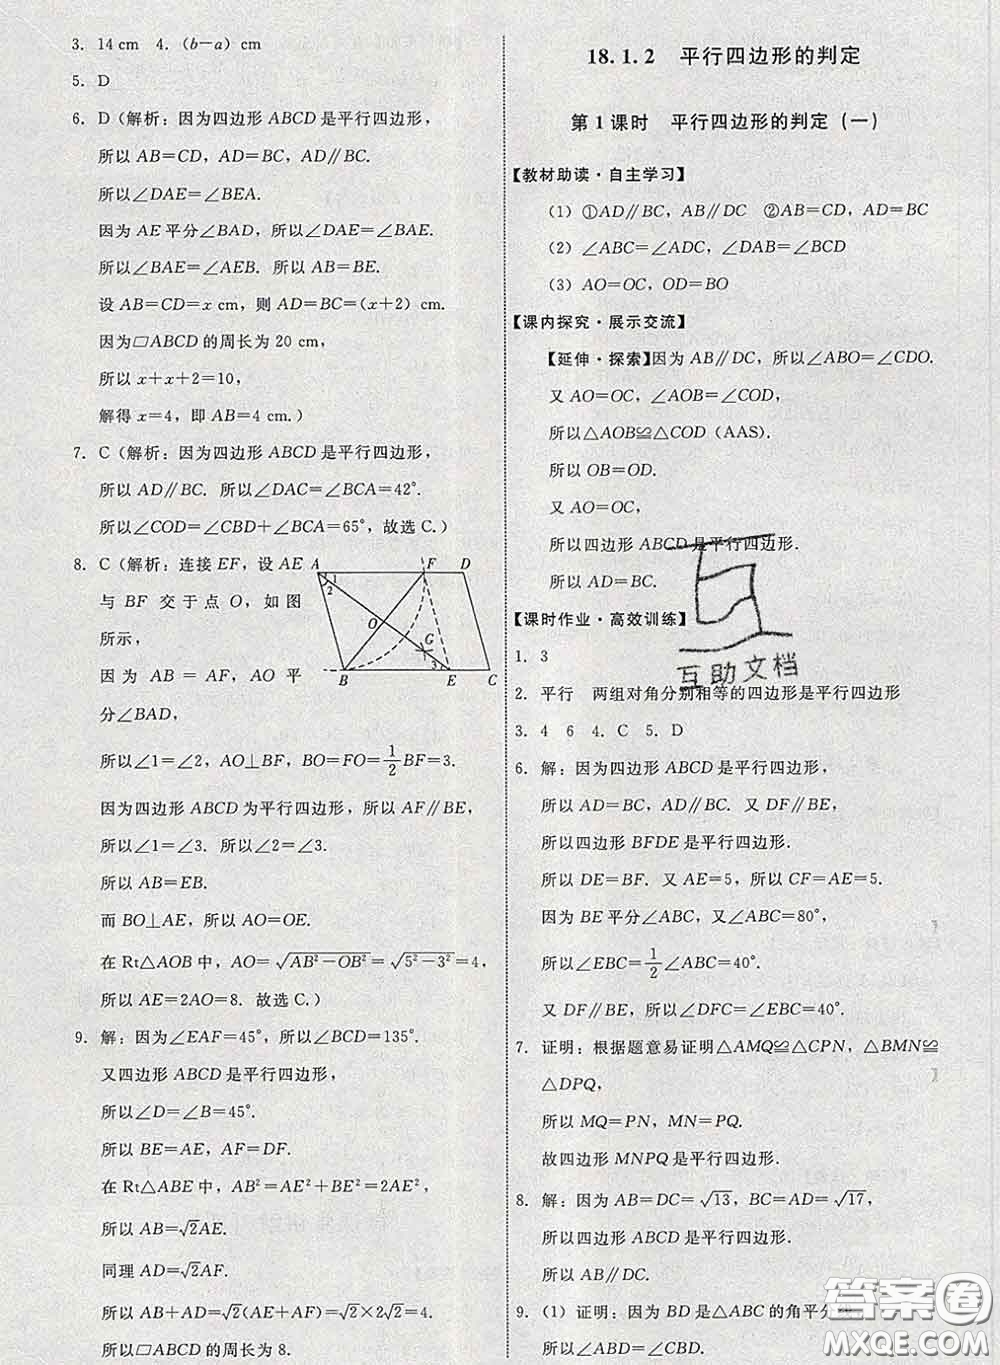 3. 14 cm 4. (b－a) cm
5. D
6. D（解析：因为四边形 ABCD 是平行四边形，
所以 AB＝CD，AD＝BC，AD∥BC.
所以∠DAE＝∠BEA.
因为 AE 平分∠BAD，所以∠DAE＝∠BAE.
所以∠BAE＝∠AEB. 所以 AB＝BE.
设 AB＝CD＝x cm，则 AD＝BC＝(x＋2) cm.
因为▱ABCD 的周长为 20 cm，
所以 x＋x＋2＝10，
解得 x＝4，即 AB＝4 cm.）
7. C（解析：因为四边形 ABCD 是平行四边形，
所以 AD∥BC. 所以∠DAC＝∠BCA＝42°.
所以∠COD＝∠CBD＋∠BCA＝65°，故选 C.）
8. C（解析：连接 EF，设 AE
与 BF 交于点 O，如图
所示，
因为 AB＝AF，AO 平
分∠BAD，
A F D
1
2
O
G
3
B E C
所以∠1＝∠2，AO⊥BF，BO＝FO＝1/2 BF＝3.
因为四边形 ABCD 为平行四边形，所以 AF∥BE，
所以∠1＝∠3. 所以∠2＝∠3.
所以 AB＝EB.
而 BO⊥AE，所以 AO＝OE.
在 Rt△AOB 中，AO＝√(AB²－OB²)＝√(5²－3²)＝4，
所以 AE＝2AO＝8. 故选 C.）
9. 解：因为∠EAF＝45°，所以∠BCD＝135°.
又四边形 ABCD 是平行四边形，
所以∠D＝∠B＝45°.
所以 BE＝AE，AF＝DF.
在 Rt△ABE 中，AB²＝AE²＋BE²＝2AE²，
所以 AB＝√2AE.
同理 AD＝√2AF.
所以 AB＋AD＝√2(AE＋AF)＝√2×2√2＝4.
所以▱ABCD 的周长为 8.
18.1.2 平行四边形的判定
第 1 课时 平行四边形的判定（一）
【教材助读·自主学习】
（1）①AD∥BC，AB∥DC ②AB＝CD，AD＝BC
（2）∠ABC＝∠ADC，∠DAB＝∠BCD
（3）AO＝OC，OD＝BO
【课内探究·展示交流】
【延伸·探索】因为 AB∥DC，所以∠ABO＝∠CDO.
又 AO＝OC，∠AOB＝∠COD，
所以△AOB≌△COD（AAS）.
所以 OB＝OD.
又 AO＝OC，
所以四边形 ABCD 是平行四边形.
所以 AD＝BC.
【课时作业·高效训练】
1. 3
2. 平行 两组对角分别相等的四边形是平行四边形
3. 4 6 4. C 5. D
6. 解：因为四边形 ABCD 是平行四边形，
所以 AD＝BC，AD∥BC. 又 DF∥BE，
所以四边形 BFDE 是平行四边形.
所以 DE＝BF. 又 AE＝5，所以 CF＝AE＝5.
因为 BE 平分∠ABC，又∠ABC＝80°，
所以∠EBC＝1/2∠ABC＝40°.
又 DF∥BE，所以∠DFC＝∠EBC＝40°.
7. 证明：根据题意易证明△AMQ≌△CPN，△BMN≌
△DPQ，
所以 MQ＝PN，MN＝PQ.
故四边形 MNPQ 是平行四边形.
8. 解：因为 AB＝DC＝√13，BC＝AD＝√17，
所以四边形 ABCD 是平行四边形.
所以 AB∥DC.
9. （1）证明：因为 BD 是△ABC 的角平分线，
所以∠ABD＝∠CBD.
互助文档
答案圈
MXQE.COM